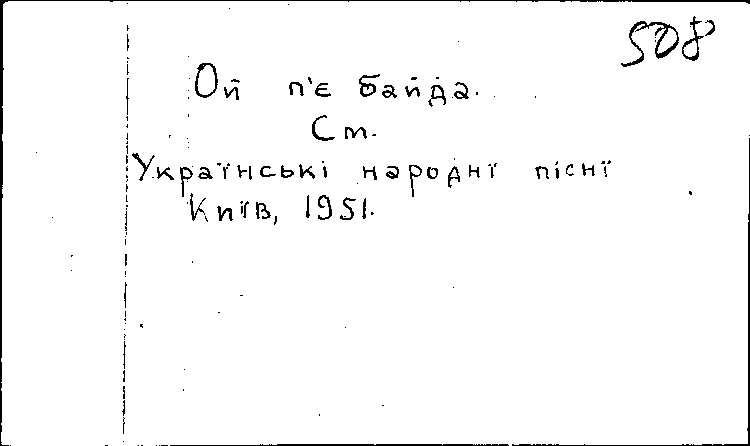 508
Ой п'є байда.
Ст.
Українські народнї піснї
Київ, 1951.